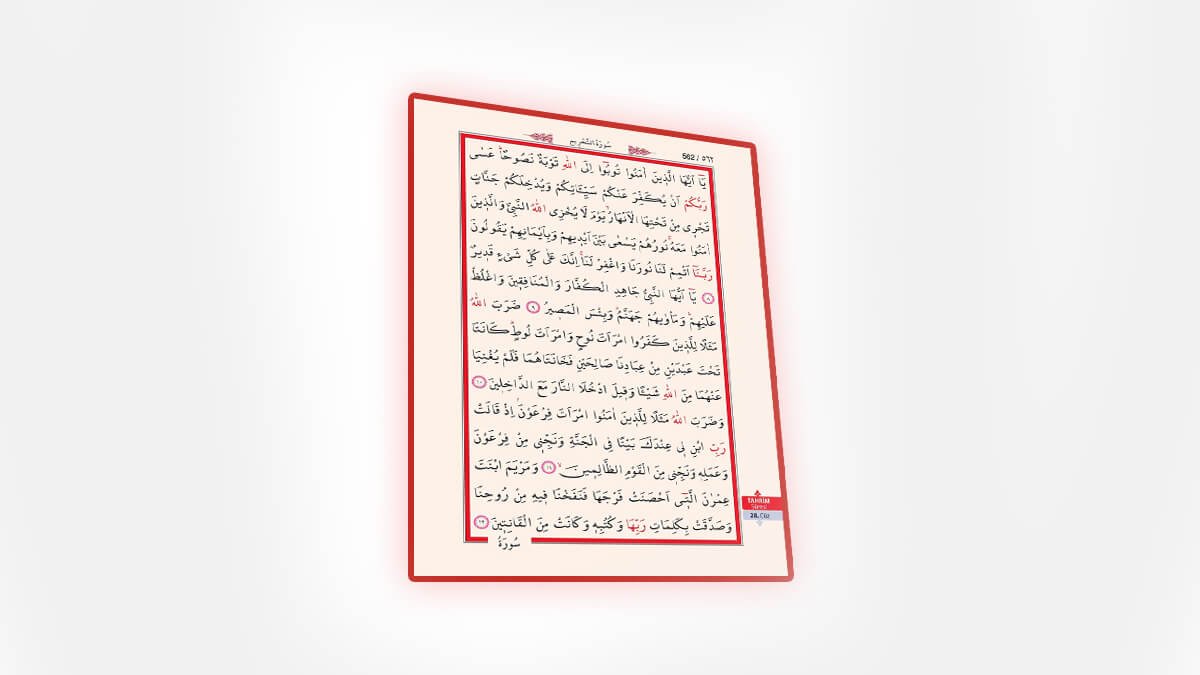 سُورَةُ التَّحْرِيمِ
562 / ٥٦٢
يَٓا اَيُّهَا الَّذ۪ينَ اٰمَنُوا تُوبُٓوا اِلَى اللّٰهِ تَوْبَةً نَصُوحًاۜ عَسٰى
رَبُّكُمْ اَنْ يُكَفِّرَ عَنْكُمْ سَيِّـَٔاتِكُمْ وَيُدْخِلَكُمْ جَنَّاتٍ
تَجْر۪ي مِنْ تَحْتِهَا الْاَنْهَارُۙ يَوْمَ لَا يُخْزِي اللّٰهُ النَّبِيَّ وَالَّذ۪ينَ
اٰمَنُوا مَعَهُۚ نُورُهُمْ يَسْعٰى بَيْنَ اَيْد۪يهِمْ وَبِاَيْمَانِهِمْ يَقُولُونَ
رَبَّنَٓا اَتْمِمْ لَنَا نُورَنَا وَاغْفِرْ لَنَاۚ اِنَّكَ عَلٰى كُلِّ شَيْءٍ قَد۪يرٌ
﴿٨﴾ يَٓا اَيُّهَا النَّبِيُّ جَاهِدِ الْكُفَّارَ وَالْمُنَافِق۪ينَ وَاغْلُظْ
عَلَيْهِمْۜ وَمَأْوٰيهُمْ جَهَنَّمُۜ وَبِئْسَ الْمَص۪يرُ ﴿٩﴾ ضَرَبَ اللّٰهُ
مَثَلًا لِلَّذ۪ينَ كَفَرُوا امْرَاَتَ نُوحٍ وَامْرَاَتَ لُوطٍۜ كَانَتَا
تَحْتَ عَبْدَيْنِ مِنْ عِبَادِنَا صَالِحَيْنِ فَخَانَتَاهُمَا فَلَمْ يُغْنِيَا
عَنْهُمَا مِنَ اللّٰهِ شَيْـًٔا وَق۪يلَ ادْخُلَا النَّارَ مَعَ الدَّاخِل۪ينَ ﴿١٠﴾
وَضَرَبَ اللّٰهُ مَثَلًا لِلَّذ۪ينَ اٰمَنُوا امْرَاَتَ فِرْعَوْنَۢ اِذْ قَالَتْ
رَبِّ ابْنِ ل۪ي عِنْدَكَ بَيْتًا فِي الْجَنَّةِ وَنَجِّن۪ي مِنْ فِرْعَوْنَ
وَعَمَلِه۪ وَنَجِّن۪ي مِنَ الْقَوْمِ الظَّالِم۪ينَۙ ﴿١١﴾ وَمَرْيَمَ ابْنَتَ
عِمْرٰنَ الَّت۪ٓي اَحْصَنَتْ فَرْجَهَا فَنَفَخْنَا ف۪يهِ مِنْ رُوحِنَا
وَصَدَّقَتْ بِكَلِمَاتِ رَبِّهَا وَكُتُبِه۪ وَكَانَتْ مِنَ الْقَانِت۪ينَ ﴿١٢﴾
سُورَةُ
TAHRİM
Sûresi
28. Cüz